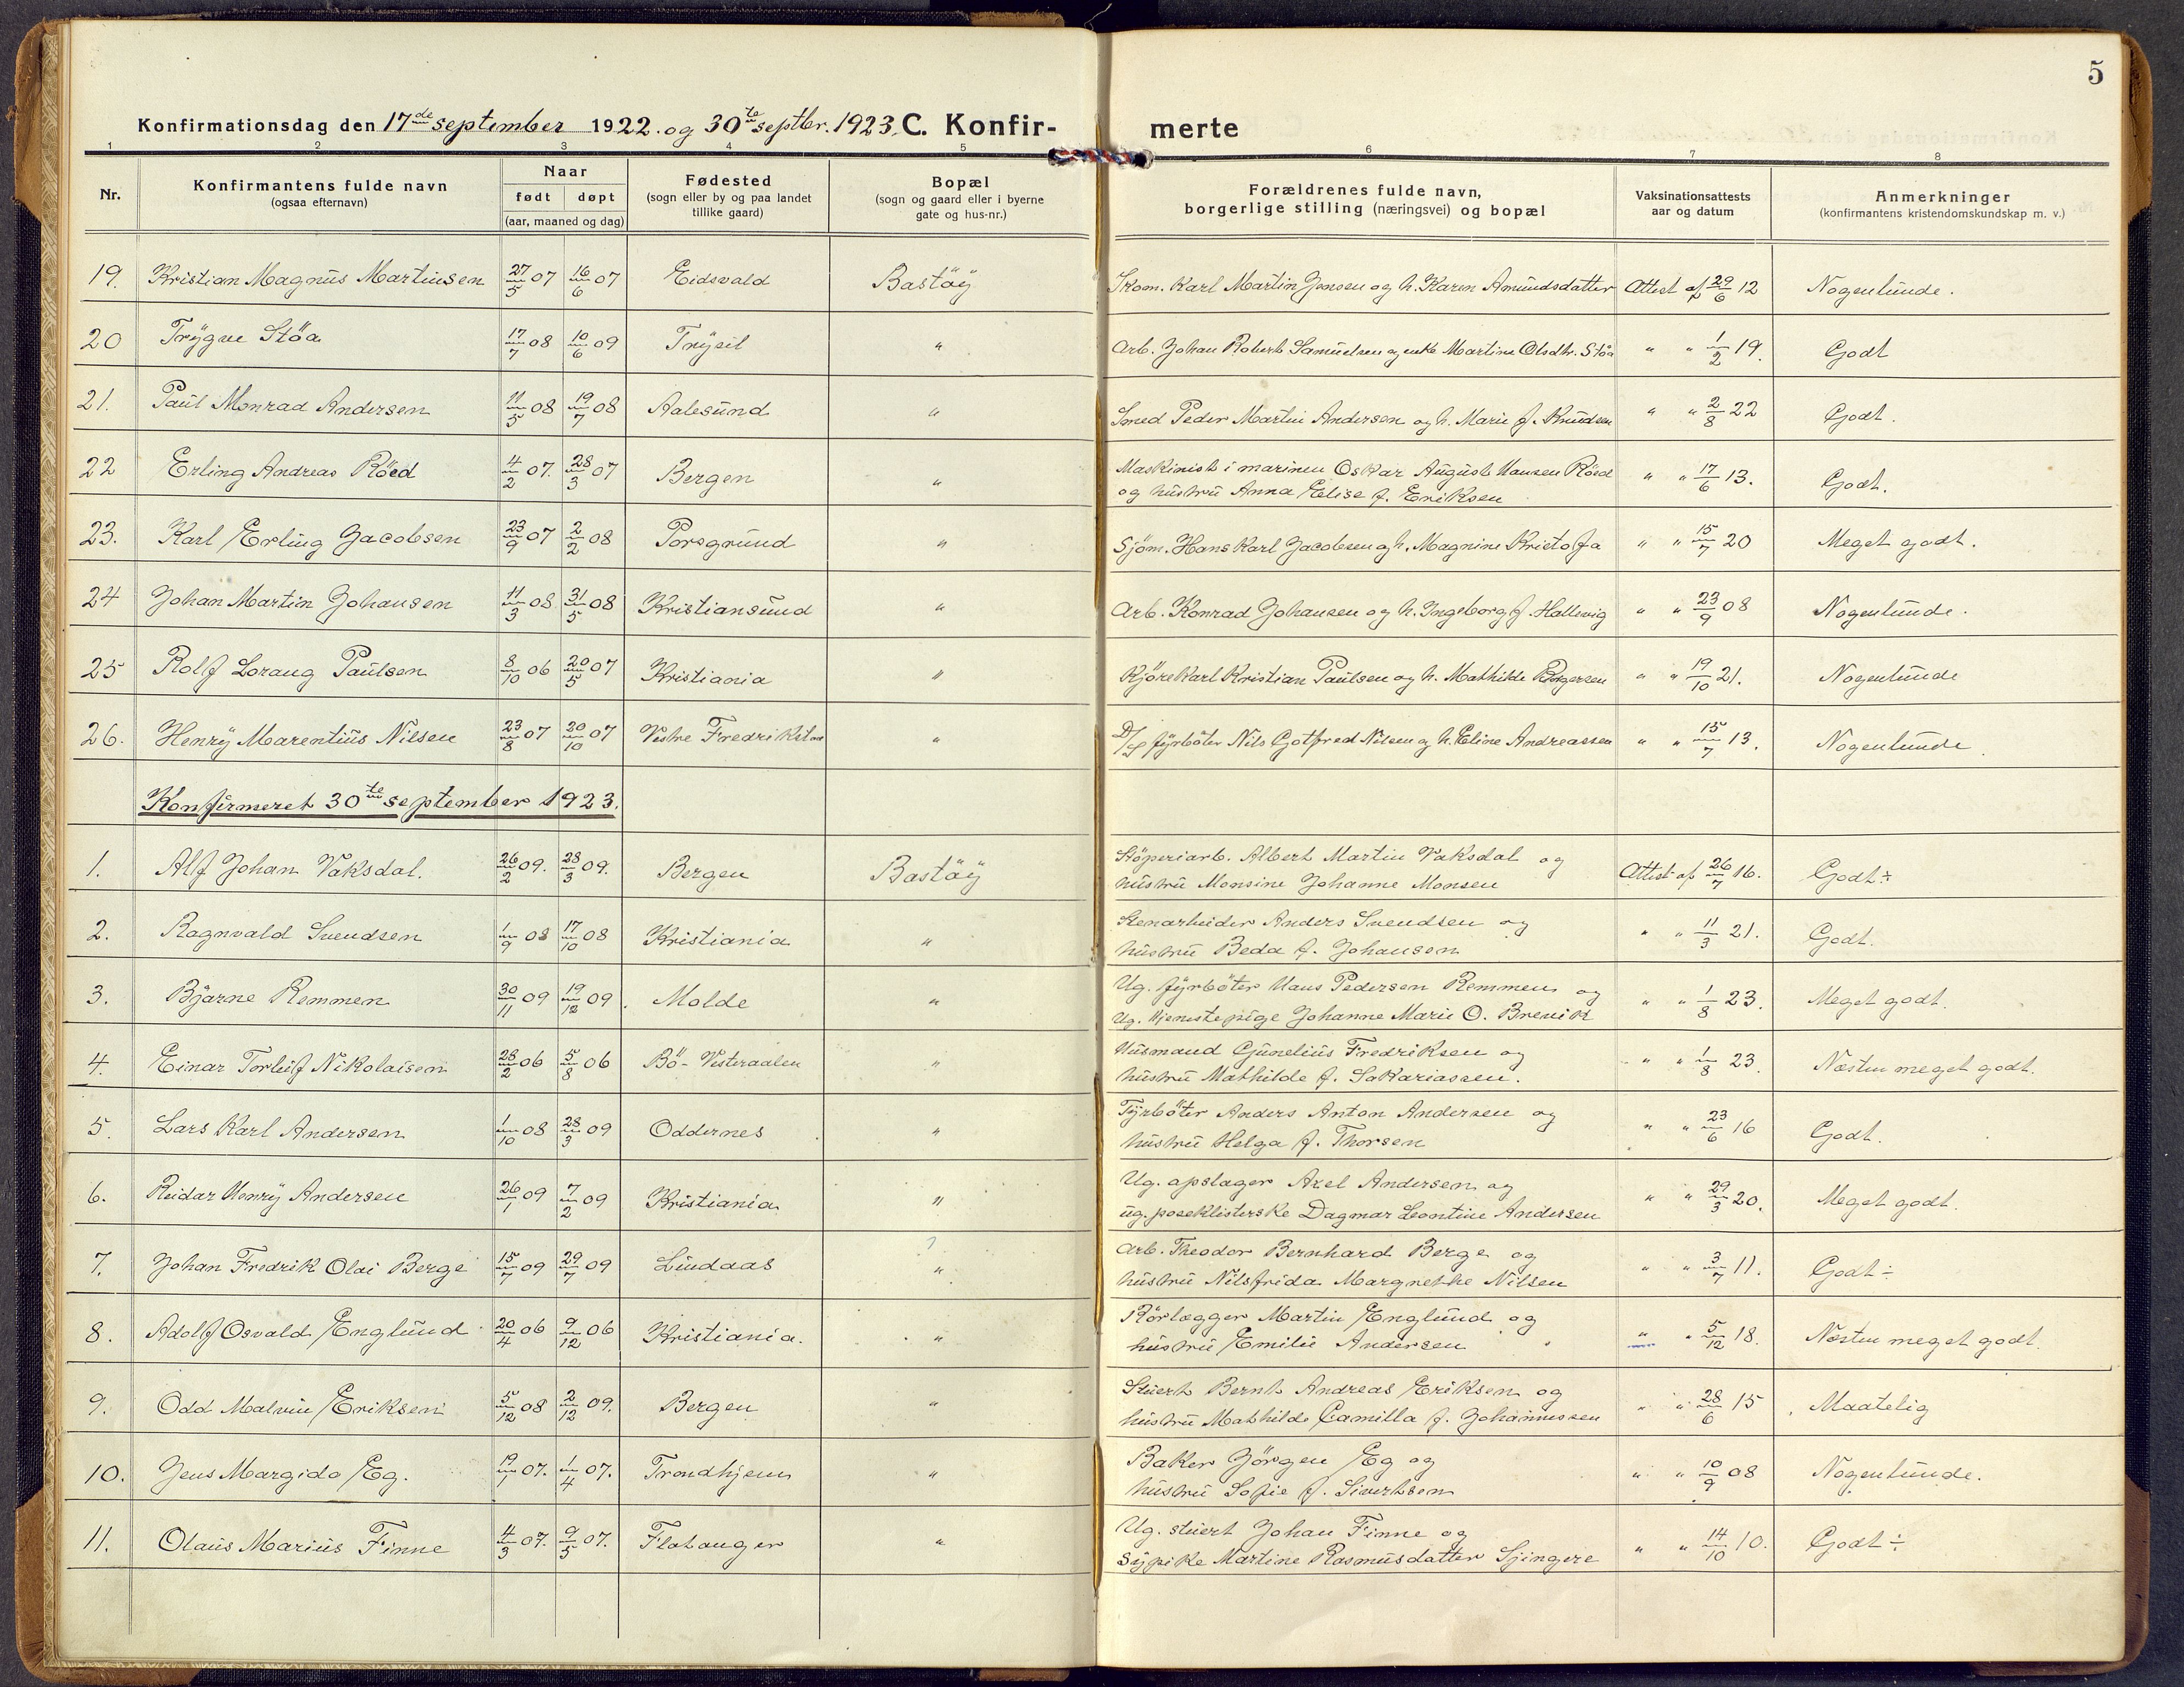 5
Konfirmationsdag den 17de september 1922. og 30te septbr. 1923. C. Konfir- merte
1 2 3 4 5 6 7 8
Nr. Konfirmantens fulde navn (ogsaa efternavn) Naar født døpt (aar, maaned og dag) Fødested (sogn eller by og paa landet tillike gaard) Bopæl (sogn og gaard eller i byerne gate og hus-nr.) Forældrenes fulde navn, borgerlige stilling (næringsvei) og bopæl Vaksinationsattests aar og datum Anmerkninger (konfirmantens kristendomskundskap m. v.)
19. Kristian Magnus Martinsen 27/5 07 16/6 07 Eidsvald Bastöy Skom. Karl Martin Jensen og h. Karen Amundsdatter Attest af 29/6 12 Nogenlunde.
20 Trygve Stöa 17/7 08 10/6 09 Trysil " Arb. Johan Robert Samuelsen og enke Martine Olsdtr. Stöa " " 1/2 19. Godt
21. Paul Monrad Andersen 11/5 08 19/7 08 Aalesund " Smed Peder Martin Andersen og h. Marie f. Knudsen " " 2/8 22 Godt.
22 Erling Andreas Röed 4/2 07. 28/3 07 Bergen " Maskinist i marinen Oskar August Hansen Röed
og hustru Anna Elise f. Eriksen " " 17/6 13. Godt.
23. Karl Erling Jacobsen 23/9 07 2/2 08 Porsgrund " Sjöm. Hans Karl Jacobsen og h. Magnine Kristofa " " 15/7 20 Meget godt.
24 Johan Martin Johansen 11/3 08 31/5 08 Kristiansund " Arb. Konrad Johansen og h. Ingeborg f. Hallevig " " 23/9 08 Nogenlunde.
25 Rolf Lorang Paulsen 8/10 06 20/5 07 Kristiania " Kjöre Karl Kristian Paulsen og h. Mathilde Borgersen " " 19/10 21. Nogenlunde
26. Henry Marentius Nilsen 23/8 07 20/10 07 Vestre Fredrikstad " D/S fyrböter Nils Gotfred Nilsen og h. Eline Andreassen " " 15/7 13. Nogenlunde.
Konfirmeret 30te september 1923.
1. Alf Johan Vaksdal. 26/2 09. 28/3 09. Bergen Bastöy Stöperiarb. Albert Martin Vaksdal og
hustru Monsine Johanne Monsen Attest af 26/7 16. Godt ÷
2. Ragnvald Svendsen 1/9 08 17/10 08 Kristiania " Stenarbeider Anders Svendsen og
hustru Beda f. Johansen " " 11/3 21. Godt.
3. Bjarne Remmen 30/11 09 19/12 09. Molde " Ug. fyrböter Hans Pedersen Remmen og
ug. tjenestepige Johanne Marie O. Brevik " " 1/8 23. Meget godt.
4. Einar Torleif Nikolaisen 28/2 06 5/8 06 Bö - Vesteraalen " Husmand Gunelius Fredriksen og
hustru Mathilde f. Sakariassen. " " 1/8 23. Næsten meget godt.
5. Lars Karl Andersen 1/10 08 28/3 09 Oddernes " Fyrböter Anders Anton Andersen og
hustru Helga f. Thorsen " " 23/6 16 Godt.
6. Reidar Henry Andersen 26/1 09 7/2 09 Kristiania " Ug. opslager Axel Andersen og
ug. poseklisterske Dagmar Leontine Andersen " " 29/3 20. Meget godt.
7. Johan Fredrik Olai Berge 15/7 09 29/7 09 Lindaas " Arb. Theodor Bernhard Berge og
hustru Nilsfrida Margrethe Nilsen " " 3/7 11. Godt ÷
8. Adolf Osvald Englund 20/4 06 9/12 06 Kristiania. " Rörlægger Martin Englund og
hustru Emilie Andersen " " 5/12 18. Næsten meget godt.
9. Odd Malvin Eriksen 5/12 08 2/12 09. Bergen " Stuert Bernt Andreas Eriksen og
hustru Mathilde Camilla f. Johannessen " " 28/6 15 Maatelig
10. Jens Margido Eg. 19/1 07. 1/4 07. Trondhjem " Baker Jörgen Eg og
hustru Sofie f. Sivertsen " " 10/9 08 Nogenlunde.
11. Olaus Marius Finne 4/3 07. 9/5 07. Flatanger " Ug. stuert Johan Finne og
sypike Martine Rasmusdatter Sjingere " " 14/10 10. Godt ÷